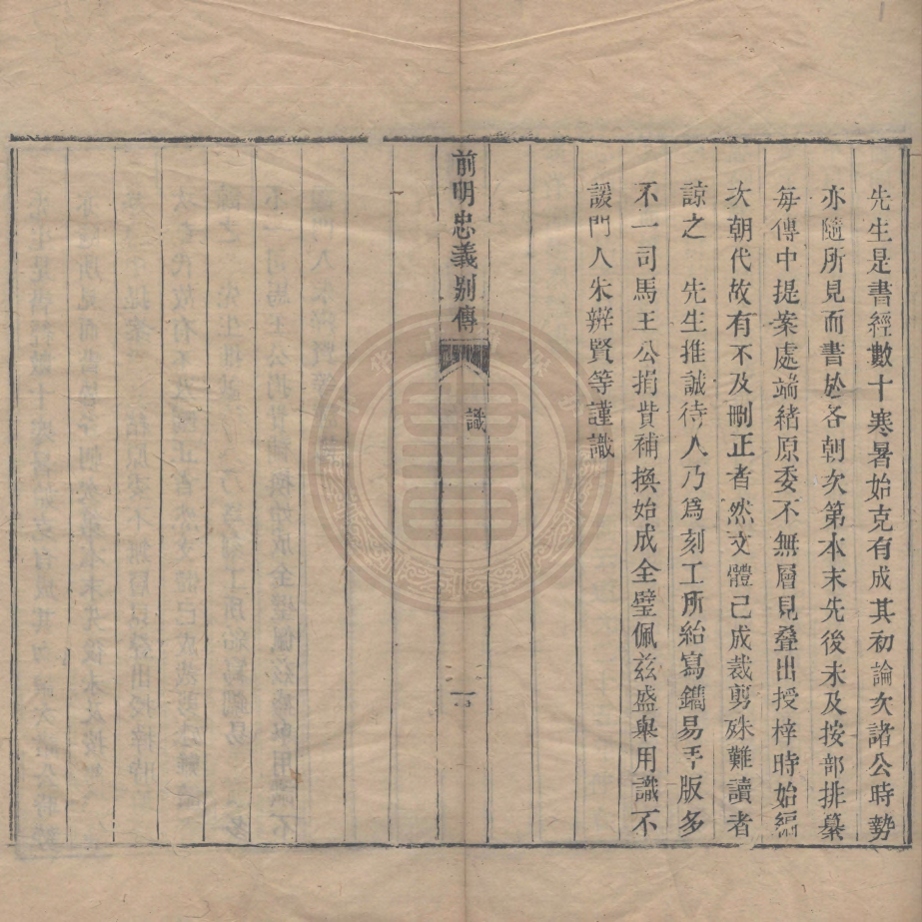 先生是書經數十寒暑始克有成其初論次諸公時勢
亦隨所見而書於各朝次第本末先後未及按部排纂
每傳中提案處端緒原委不無層見叠出授梓時始編
次朝代故有不及刪正者然文體已成裁剪殊難讀者
諒之　先生推誠待人乃爲刻工所紿寫鐫易手版多
不一司馬王公捐貲補換始成全璧佩兹盛舉用識不
諼門人朱辫賢等謹識
前明忠義别傳
識
一